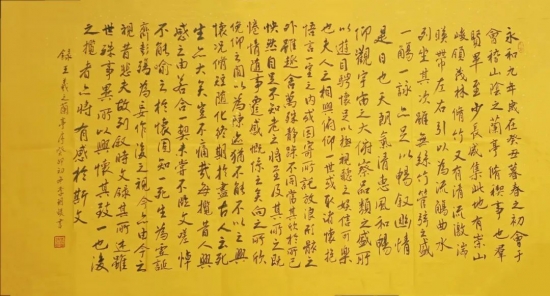 永和九年歲在癸丑暮春之初會于
會稽山陰之蘭亭脩稧事也群
賢畢至少長咸集此地有崇山
峻領茂林脩竹又有清流激湍
暎帶左右引以為流觴曲水
列坐其次雖無絲竹管弦之盛
一觴一詠亦足以暢敘幽情
是日也天朗氣清惠風和暢
仰觀宇宙之大俯察品類之盛所
以遊目騁懷足以極視聽之娛信可樂
也夫人之相與俯仰一世或取諸懷抱
悟言一室之內或因寄所託放浪形骸之
外雖趣舍萬殊靜躁不同當其欣於所
快然自足不知老之將至及其所之既
惓情隨事遷感慨係之矣向之所欣
俛仰之間以為陳迹猶不能不以之興
懷況脩短隨化終期於盡古人云死
生亦大矣豈不痛哉每攬昔人興
感之由若合一契未嘗不臨文嗟悼
不能喻之於懷固知死生為虛誕
齊彭殤為妄作後之視今亦由今之
視昔悲夫故列敘時文錄其所述雖
世殊事異所以興懷其致一也後
之攬者亦時有感於斯文
錄王羲之蘭亭序癸卯初書